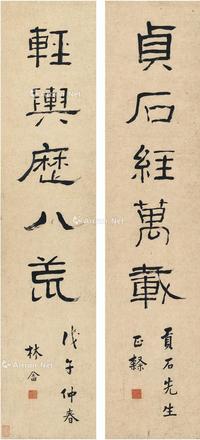 貞石經萬載
貢石先生
正隸
輕輿歷八荒
戊午仲春
林佘